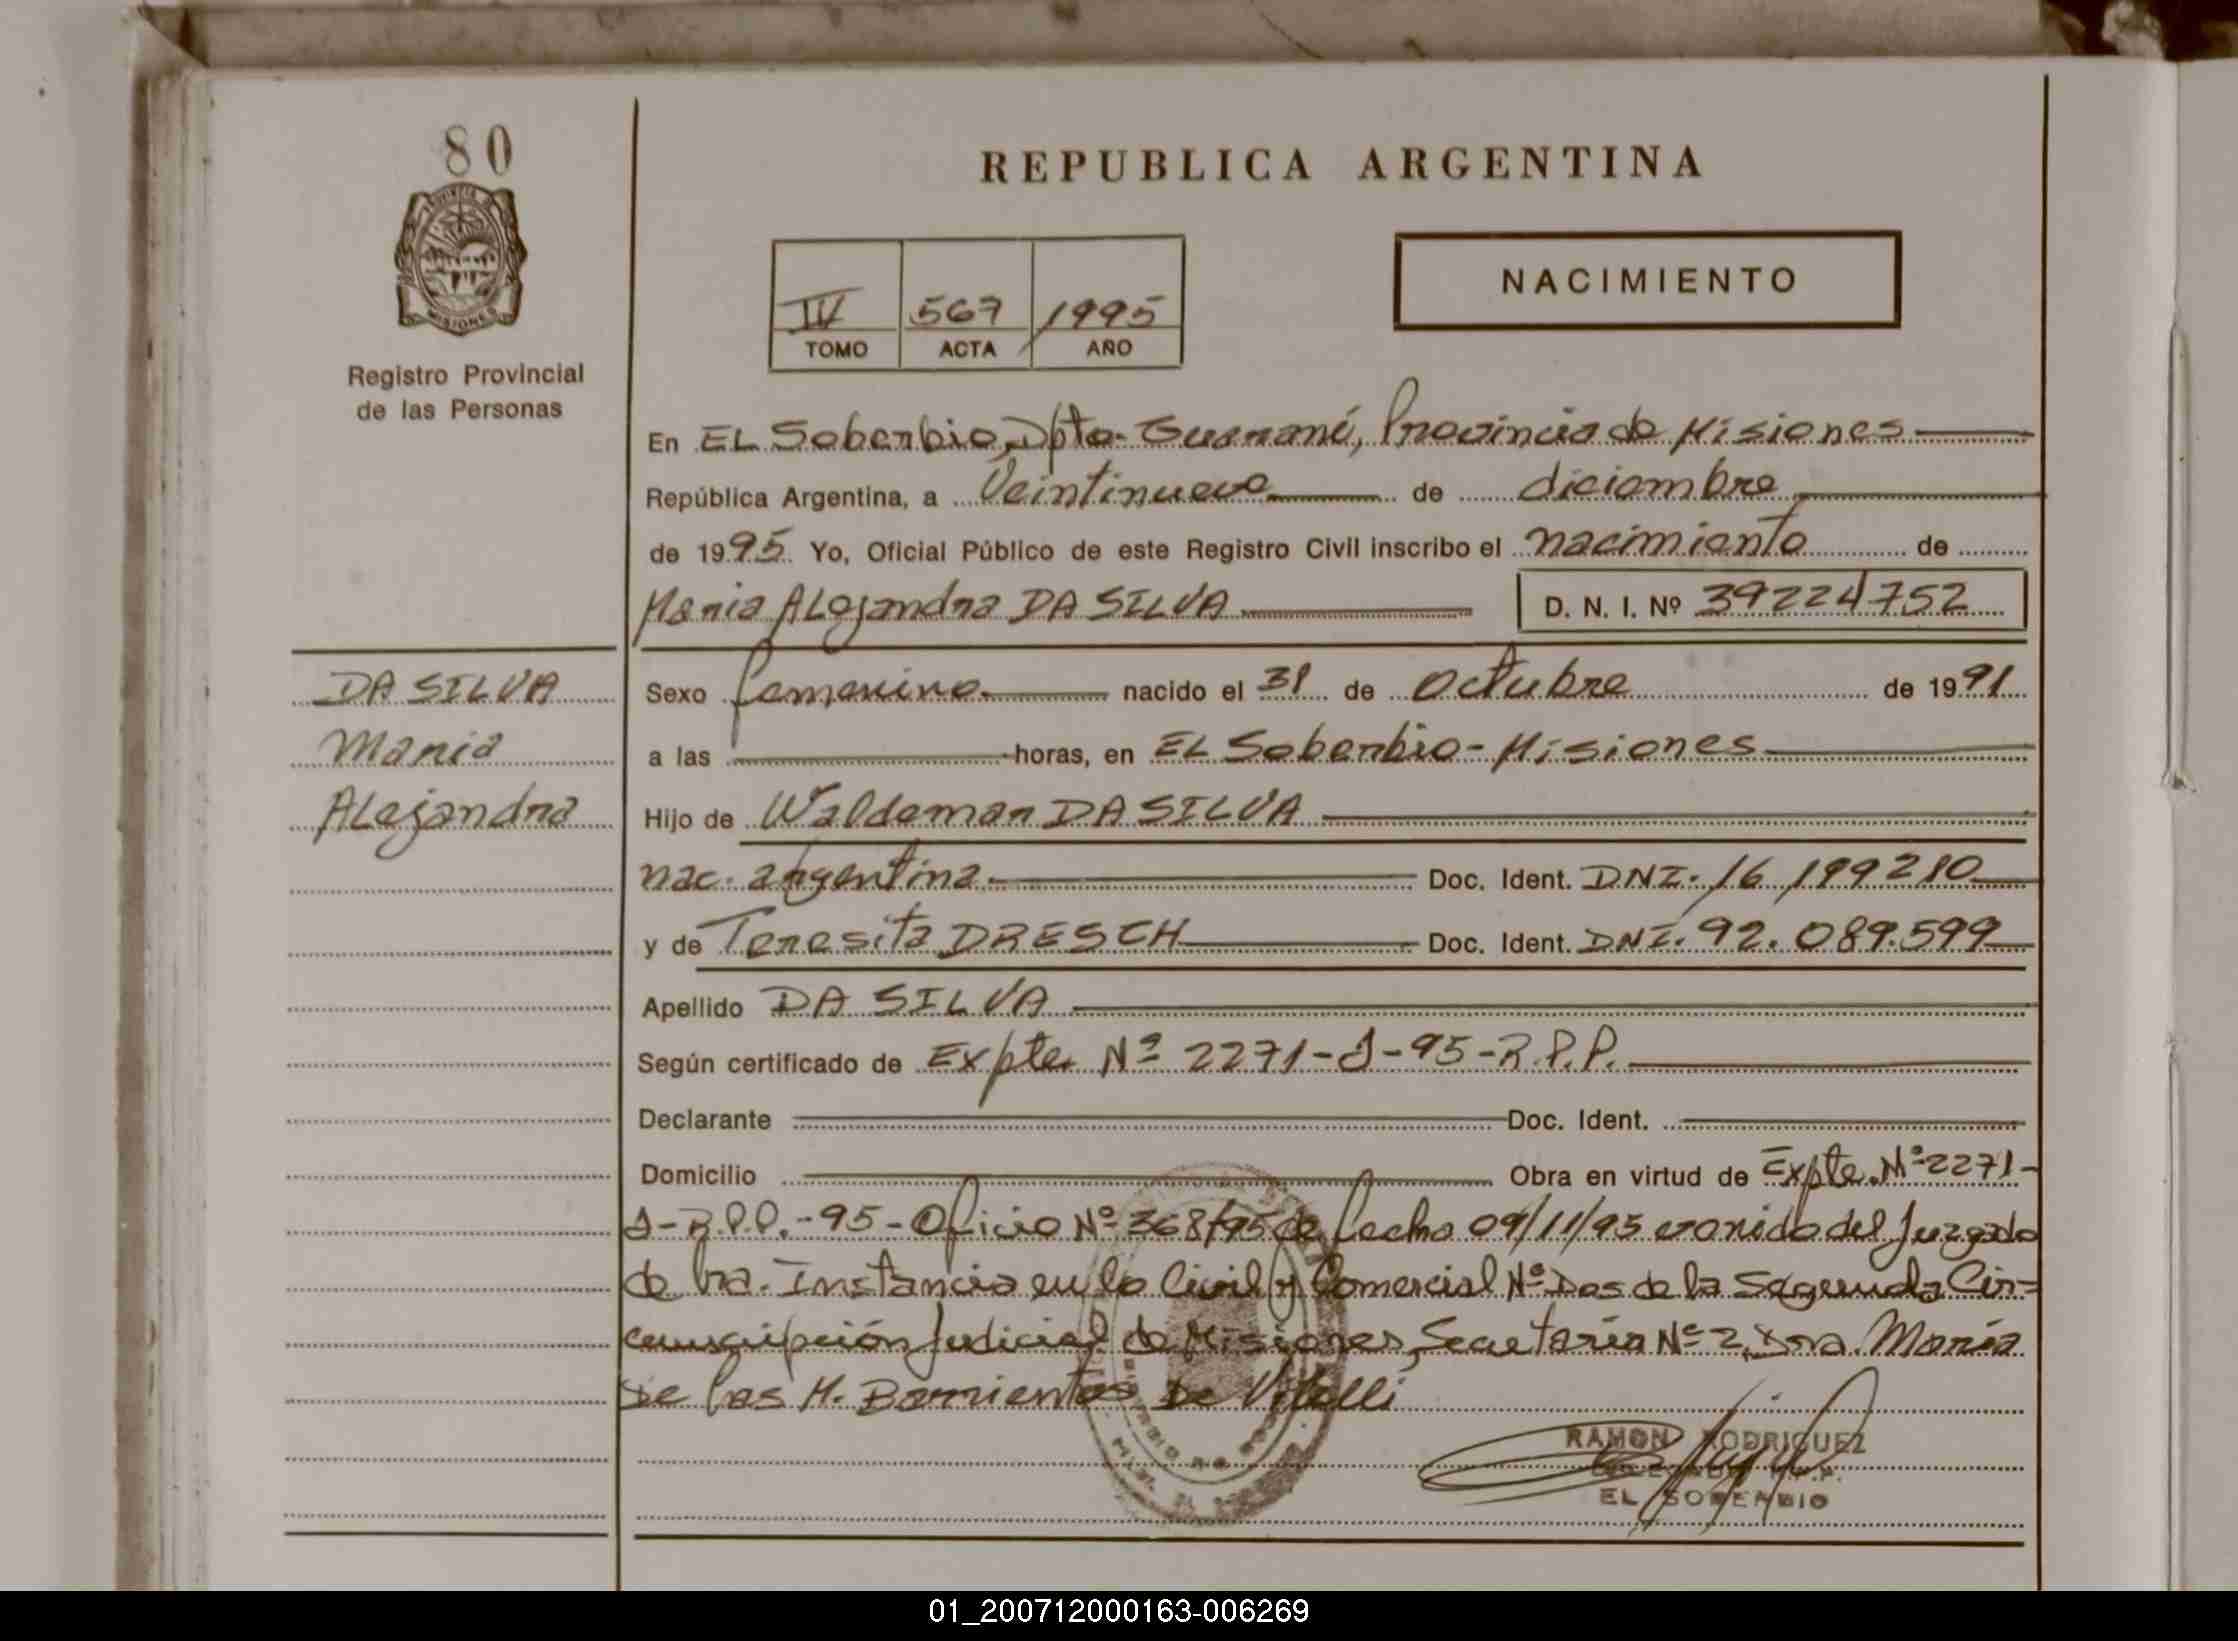 80
PROVINCIA DE
MISIONES
Registro Provincial
de las Personas
REPUBLICA ARGENTINA
IV 567 1995
TOMO ACTA AÑO
NACIMIENTO
En EL Soberbio, Dpto. Guaraní, Provincia de Misiones
República Argentina, a Veintinueve de diciembre
de 1995 Yo, Oficial Público de este Registro Civil inscribo el nacimiento de
Maria ALejandra DA SILVA D. N. I. Nº 39224752
DA SILVA
Maria
ALejandra
Sexo femenino nacido el 31 de Octubre de 1991
a las horas, en EL Soberbio - Misiones
Hijo de Waldemar DA SILVA
nac. argentina Doc. Ident. DNI. 16.199210
y de Teresita DRESCH Doc. Ident. DNI. 92.089.599
Apellido DA SILVA
Según certificado de Expte Nº 2271-J-95-R.P.P.
Declarante Doc. Ident.
Domicilio Obra en virtud de Expte. Nº 2271-
J-R.P.P.-95- Oficio Nº 368/95 de fecha 09/11/95 venido del Juzgado
de 1ra. Instancia en lo Civil y Comercial Nº Dos de la Segunda Cir-
cunscripción Judicial de Misiones, Secretaría Nº 2, Dra. María
De las M. Barrientos De
RAMON RODRIGUEZ
EL SOBERBIO
01_200712000163-006269